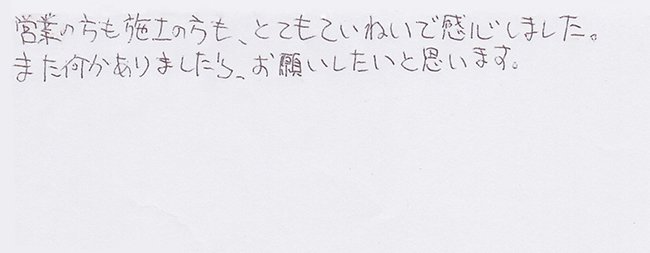 営業の方も施工の方も、とてもていねいで感心しました。
また何かありましたら、お願いしたいと思います。